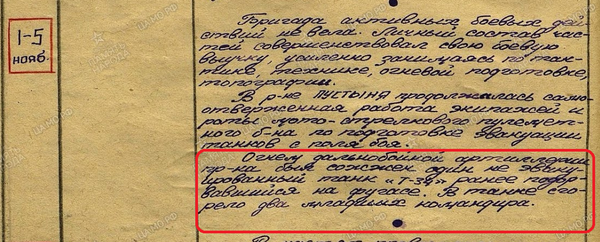 1-5
нояб.
Бригада активных боевых дей-
ствий не вела. Личный состав час-
тей совершенствовал свою боевую
выучку, усиленно занимаясь по так-
тике, технике, огневой подготовке,
топографии.
В р-не ПУСТЫНЯ продолжалась само-
отверженная работа экипажей и
роты мото-стрелкового пулемет-
ного б-на по подготовке эвакуации
танков с поля боя.
Огнем дальнобойной артиллерии
пр-ка был сожжен один не эваку-
ированный танк «Т-34», ранее подор-
вавшийся на фугасе. В танке сго-
рело два младших командира.